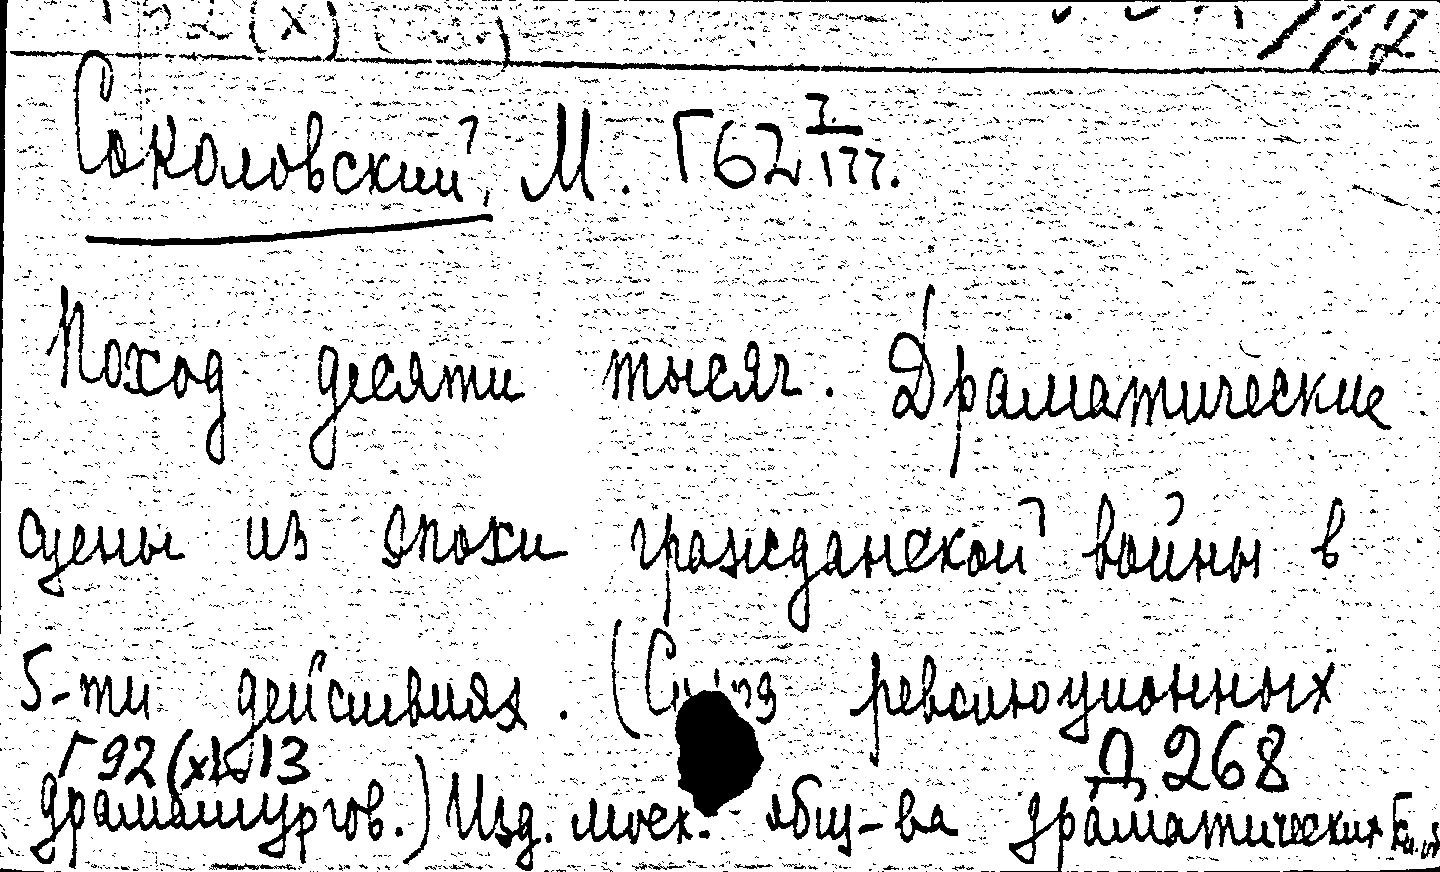 177
Соколовский, М. Г62 I/177.
Поход десяти тысяч. Драматические
сцены из эпохи гражданской войны в
5-ти действиях. (Союз революционных
Г92(х) 13 Д 268
драматургов.) Изд. моск. общ-ва драматических